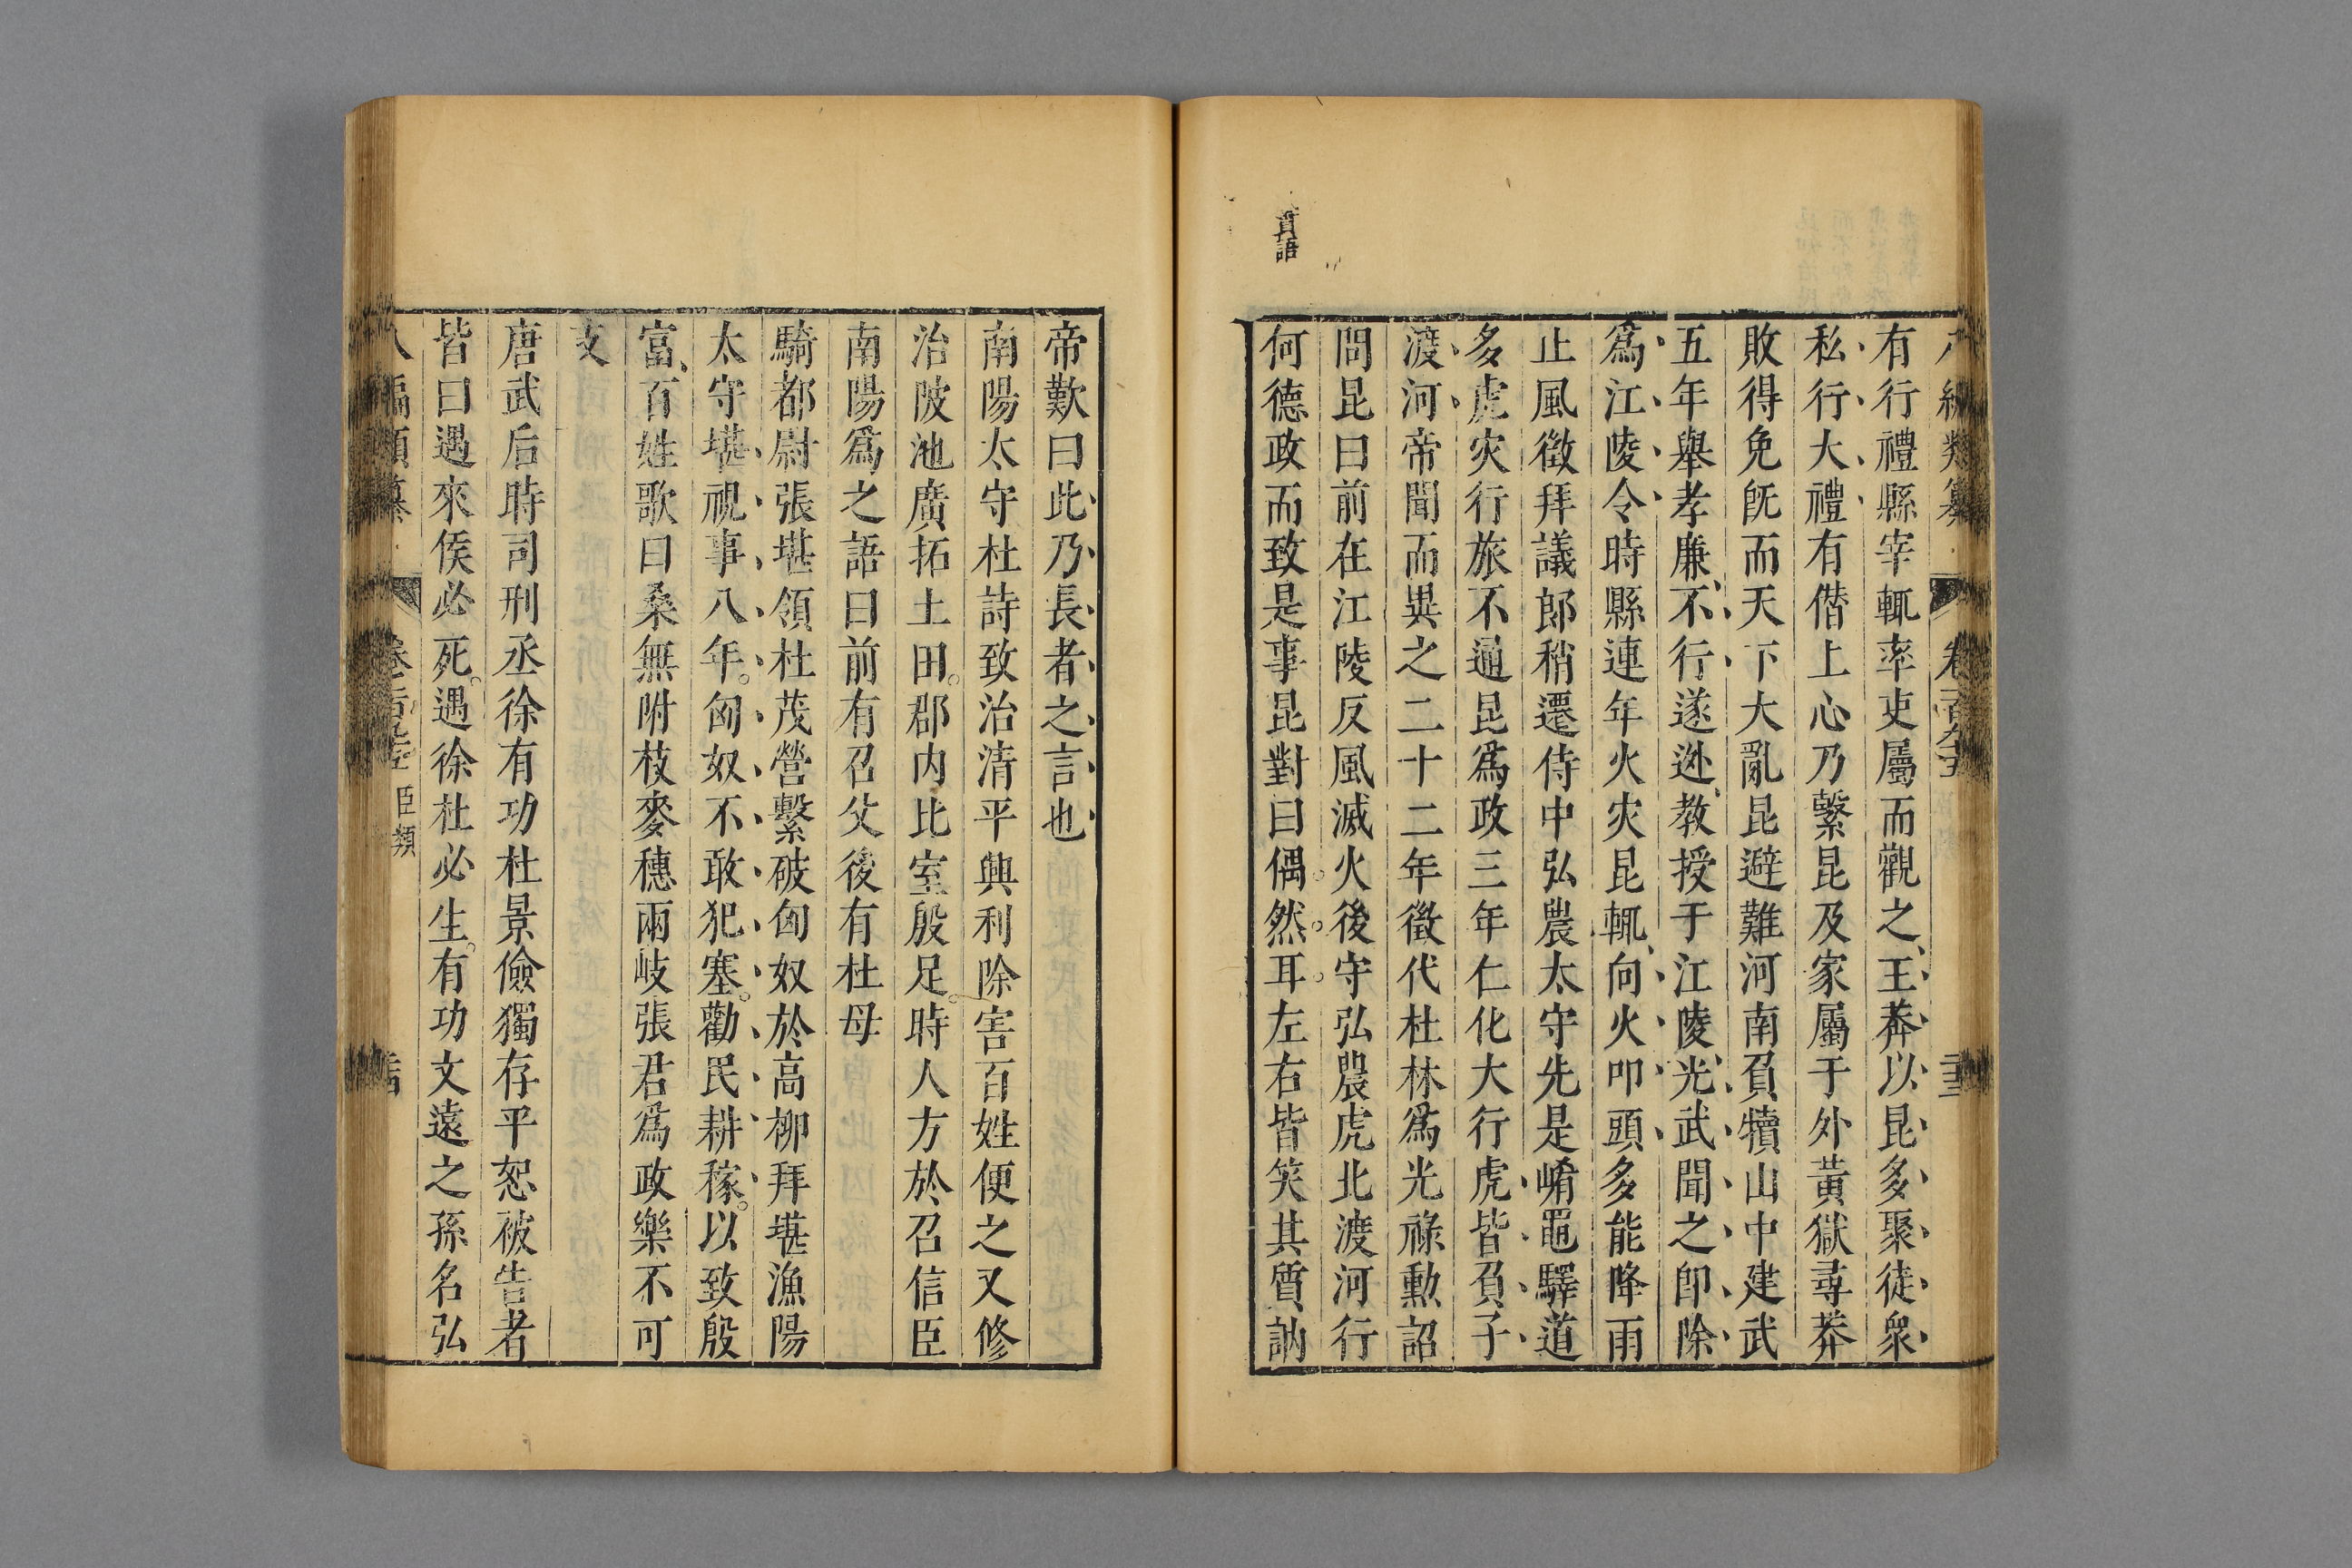 有行禮縣宰輒率吏屬而觀之王莽以昆多聚徒衆
私行大禮有僣上心乃繫昆及家屬于外黃獄尋莽
敗得免旣而天下大亂昆避難河南負犢山中建武
五年舉孝廉不行遂逃教授于江陵光武聞之卽除
爲江陵令時縣連年火灾昆輒向火叩頭多能降雨
止風徵拜議郎稍遷侍中弘農太守先是崤黽驛道
多虎灾行旅不通昆爲政三年仁化大行虎皆負子
渡河帝聞而異之二十二年徵代杜林爲光祿勳詔
問昆曰前在江陵反風滅火後守弘農虎北渡河行
何德政而致是事昆對曰偶然耳左右皆笑其質訥
質語
帝歎曰此乃長者之言也
南陽太守杜詩致治清平興利除害百姓便之又修
治陂池廣拓土田郡内比室殷足時人方於召信臣
南陽爲之語曰前有召父後有杜母
騎都尉張堪領杜茂營繫破匈奴於高柳拜堪漁陽
太守堪視事八年匈奴不敢犯塞勸民耕稼以致殷
富百姓歌曰桑無附枝麥穗兩岐張君爲政樂不可
支
唐武后時司刑丞徐有功杜景儉獨存平恕被告者
皆曰遇來侯必死遇徐杜必生有功文遠之孫名弘
八編類纂 臣類